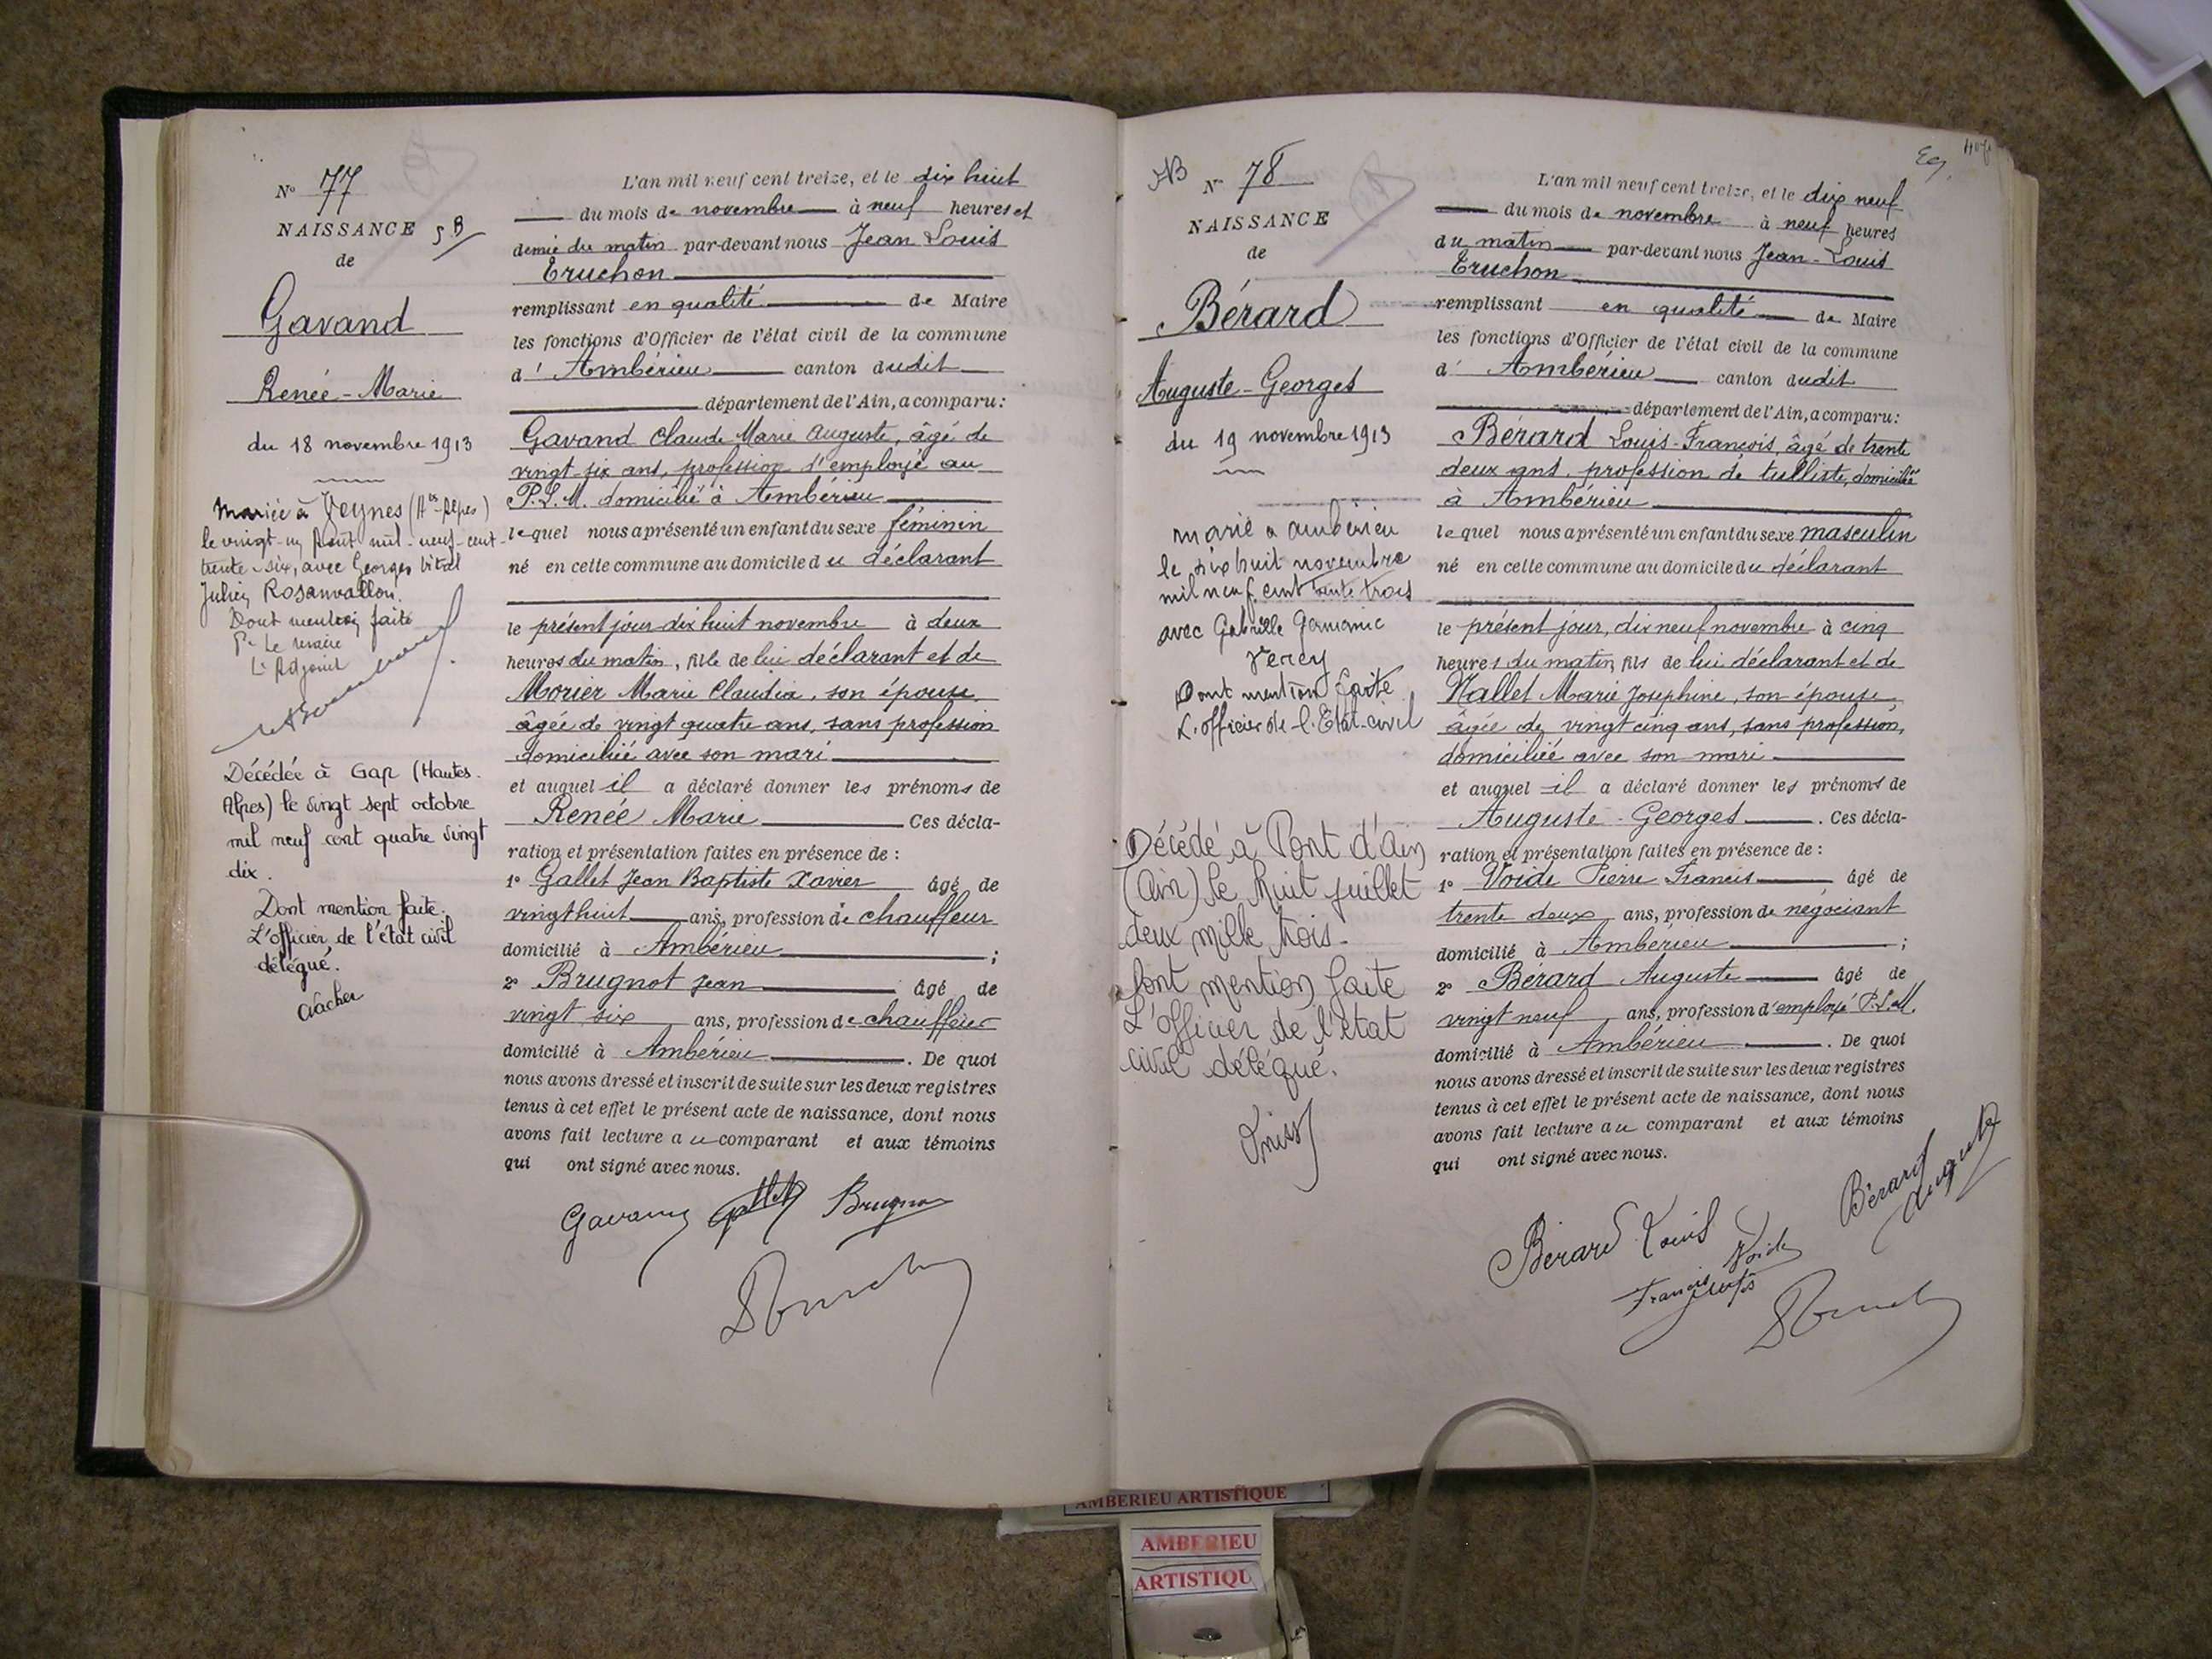 N° 77
NAISSANCE
de
Gavand
Renée-Marie
du 18 novembre 1913
mariée à Veynes (Htes-Alpes)
le vingt-un Août mil-neuf-cent-
trente-six, avec Georges Vital
Julien Rosanvallon.
Dont mention faite
Pr Le Maire
L'Adjoint
Décédée à Gap (Hautes-
Alpes) le vingt sept octobre
mil neuf cent quatre vingt
dix.
Dont mention faite.
L'officier de l'état civil
délégué.
L'an mil neuf cent treize, et le dix huit
du mois de novembre à neuf heures et
demie du matin par-devant nous Jean Louis
Truchon
remplissant en qualité de Maire
les fonctions d'Officier de l'état civil de la commune
d'Ambérieu canton dudit
département de l'Ain, a comparu:
Gavand Claude Marie Auguste, âgé de
vingt-six ans, profession d'employé au
P.L.M. domicilié à Ambérieu
lequel nous a présenté un enfant du sexe féminin
né en cette commune au domicile du déclarant
le présent jour dix huit novembre à deux
heures du matin, fille de lui déclarant et de
Morier Marie Claudia, son épouse,
âgée de vingt quatre ans, sans profession
domiciliée avec son mari
et auquel il a déclaré donner les prénoms de
Renée Marie Ces décla-
ration et présentation faites en présence de :
1° Gallet Jean Baptiste Xavier âgé de
vingt huit ans, profession de chauffeur
domicilié à Ambérieu ;
2° Brugnot Jean âgé de
vingt six ans, profession de chauffeur
domicilié à Ambérieu . De quoi
nous avons dressé et inscrit de suite sur les deux registres
tenus à cet effet le présent acte de naissance, dont nous
avons fait lecture au comparant et aux témoins
qui ont signé avec nous.
Gavand Gallet Brugnot
N° 78
NAISSANCE
de
Bérard
Auguste-Georges
du 19 novembre 1913
marié à ambérieu
le dix huit novembre
mil neuf cent trente trois
avec Gabrielle Germaine
Dont mention faite
L'officier de l'Etat-civil
Décédé à Pont d'Ain
(Ain) le huit juillet
deux mille trois.
Dont mention faite
L'officier de l'état
civil délégué.
L'an mil neuf cent treize, et le dix neuf
du mois de novembre à neuf heures
du matin par-devant nous Jean-Louis
Truchon
remplissant en qualité de Maire
les fonctions d'Officier de l'état civil de la commune
d'Ambérieu canton dudit
département de l'Ain, a comparu:
Bérard Louis-François, âgé de trente
deux ans, profession de tulliste, domicilié
à Ambérieu
lequel nous a présenté un enfant du sexe masculin
né en cette commune au domicile du déclarant
le présent jour, dix neuf novembre à cinq
heures du matin, fils de lui déclarant et de
Nallet Marie Joséphine, son épouse
âgée de vingt cinq ans, sans profession,
domiciliée avec son mari
et auquel il a déclaré donner les prénoms de
Auguste-Georges . Ces décla-
ration et présentation faites en présence de :
1° Voide Pierre Francis âgé de
trente deux ans, profession de négociant
domicilié à Ambérieu ;
2° Bérard Auguste âgé de
vingt neuf ans, profession d'employé P.L.M.
domicilié à Ambérieu . De quoi
nous avons dressé et inscrit de suite sur les deux registres
tenus à cet effet le présent acte de naissance, dont nous
avons fait lecture au comparant et aux témoins
qui ont signé avec nous.
Bérard Louis
Voide
Bérard
Auguste
AMBERIEU ARTISTIQUE
AMBERIEU
ARTISTIQU